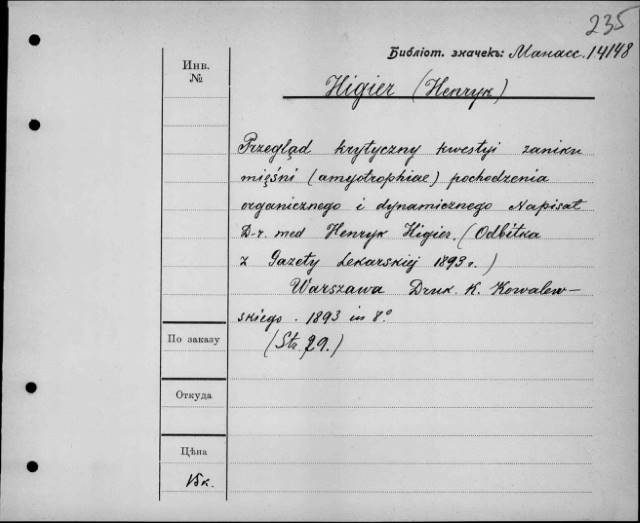 235
Библіот. значекъ: Манасс. 14148
Инв.
№
Higier (Henryk)
Przegląd krytyczny kwestyi zaniku
mięśni (amyotrophiae) pochodzenia
organicznego i dynamicznego Napisał
D-r. med Henryk Higier. (Odbitka
z Gazety Lekarskiej 1893 r.)
Warszawa Druk. K. Kowalew-
skiego. 1893 in 8º
(Str. 29.)
По заказу
Откуда
Цѣна
15 к.